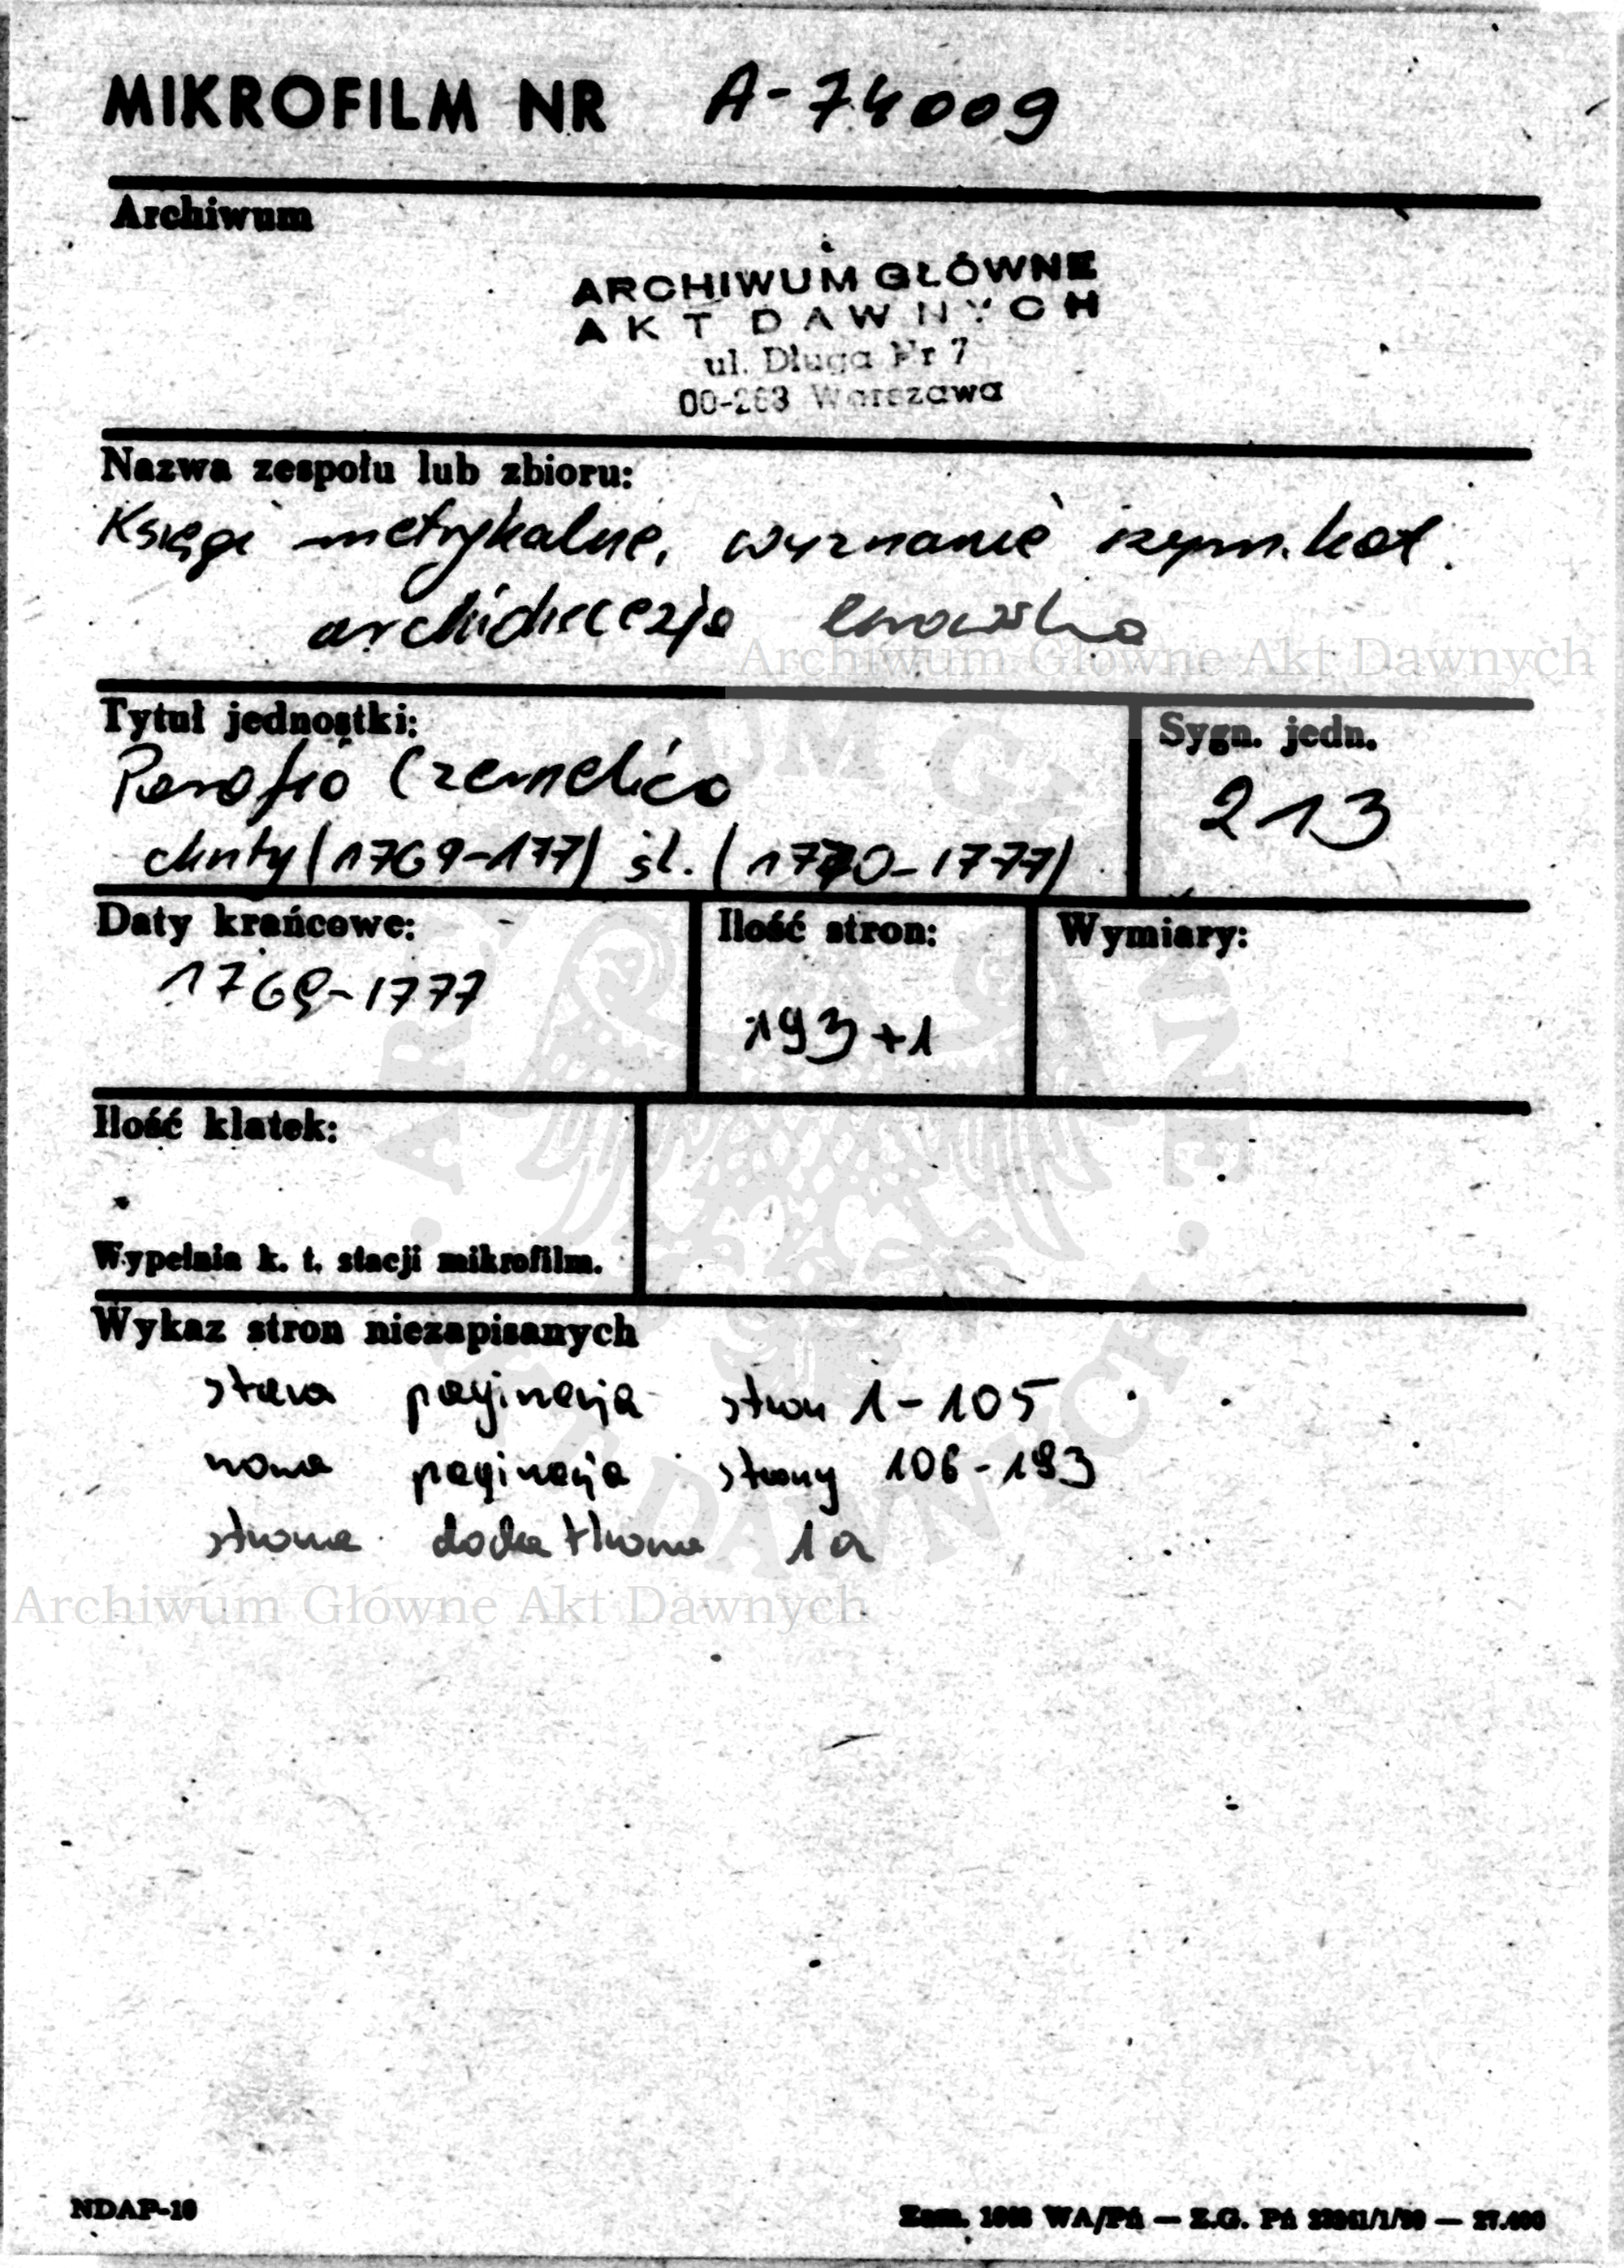 MIKROFILM NR A-74009
Archiwum
ARCHIWUM GŁÓWNE
AKT DAWNYCH
ul. Długa Nr 7
00-263 Warszawa
Nazwa zespołu lub zbioru:
Księgi metrykalne, wyznanie rzym. kat.
archidiecezja lwowska
Archiwum Główne Akt Dawnych
Tytuł jednostki:
Sygn. jedn.
Parafia Czernelica
213
chrzty (1769-177) śl. (1770-1777)
Daty krańcowe:
Ilość stron:
Wymiary:
1769-1777
193+1
Ilość klatek:
Wypełnia k. t. stacji mikrofilm.
Wykaz stron niezapisanych
stara paginacja stron 1-105
nowa paginacja strony 106-193
strona dodatkowa 1a
Archiwum Główne Akt Dawnych
NDAP-10
Zam. WA/Pń — Z.G. Pń — 27.000